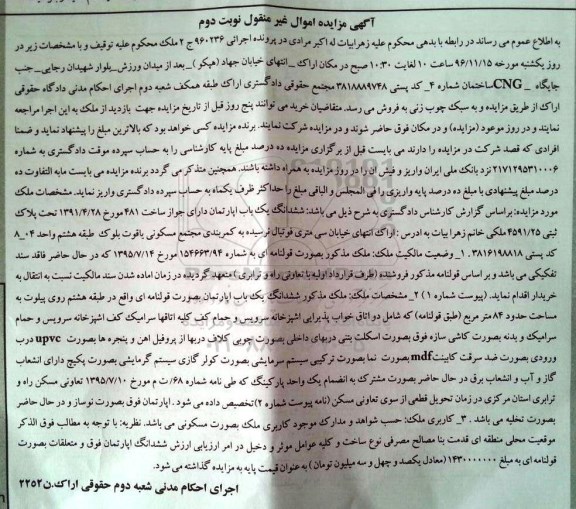 آگهی مزایده اموال غیر منقول نوبت دوم
به اطلاع عموم می رساند در رابطه با بدهی محکوم علیه زهرابیات له اکبر مرادی در پرونده اجرائی ۹۶۰۲۳۶ ج ۲ ملک محکوم علیه توقیف و با مشخصات زیر در
روز یکشنبه مورخه ۹۶/۱۱/۱۵ ساعت ۱۰ لغایت ۱۰:۳۰ صبح در مکان اراک _انتهای خیابان جهاد (هپکو )_بعد از میدان ورزش_بلوار شهیدان رجایی_ جنب
جایگاه _ CNGساختمان شماره ۴_کد پستی ۳۸۱۸۸۸۹۷۴۸ مجتمع حقوقی دادگستری اراک طبقه همکف شعبه دوم اجرای احکام مدنی دادگاه حقوقی
اراک از طریق مزایده و به سبک چوب زنی به فروش می رسد. متقاضیان خرید می توانند پنج روز قبل از تاریخ مزایده جهت بازدید از ملک به این اجرا مراجعه
نمایند و در روز موعود (مزایده) و در مکان فوق حاضر شوند و در مزایده شرکت نمایند. برنده مزایده کسی خواهد بود که بالاترین مبلغ را پیشنهاد نماید و ضمنا
افرادی که قصد شرکت در مزایده را دارند می بایست قبل از برگزاری مزایده ده درصد مبلغ پایه کارشناسی را به حساب سپرده موقت دادگستری به شماره
۲۱۷۱۲۹۵۳۱۰۰۰۶ نزد بانک ملی ایران واریز و فیش آن را در روز مزایده به همراه داشته باشند. همچنین متذکر می گردد برنده مزایده می بایست مابه التفاوت ده
درصد مبلغ پیشنهادی با مبلغ ده درصد پایه واریزی را فی المجلس و الباقی مبلغ را حداکثر ظرف یکماه به حساب سپرده دادگستری واریز نماید. مشخصات ملک
مورد مزایده: براساس گزارش کارشناس دادگستری به شرح ذیل می باشد: ششدانگ یک باب آپارتمان دارای جواز ساخت ۴۸۱ مورخ ۱۳۹۱/۴/۲۸ تحت پلاک
ثبتی ۴۵۹۱/۲۵ ملکی خانم زهرا بیات به آدرس : اراک انتهای خیابان سی متری فوتبال نرسیده به کمربندی مجتمع مسکونی یاقوت بلوک طبقه هشتم واحد ۰۴_۸
کد پستی ۳۸۱۶۱۹۸۸۱۸ . ۱_ وضعیت مالکیت ملک: ملک مذکور بصورت قولنامه ای به شماره ۱۵۴۶۶۳/۹۴ مورخ ۱۳۹۵/۷/۱۴ که در حال حاضر فاقد سند
تفکیکی می باشد و بر اساس قولنامه مذکور فروشنده (طرف قرارداد اولیه با تعاونی راه و ترابری ) متعهد گردیده در زمان آماده شدن سند مالکیت نسبت به انتقال به
خریدار اقدام نماید. (پیوست شماره ۱) ۲_ مشخصات ملک: ملک مذکور ششدانگ یک باب آپارتمان بصورت قولنامه ای واقع در طبقه هشتم روی پیلوت به
مساحت حدود ۸۴ متر مربع (طبق قولنامه) که شامل دو اتاق خواب پذیرایی آشپزخانه سرویس و حمام کف کلیه اتاقها سرامیک کف آشپزخانه سرویس و حمام
سرامیک و بدنه بصورت کاشی سازه فوق بصورت اسکلت بتنی دربهای داخلی بصورت چوبی کلاف دربها از پروفیل آهن و پنجره ها بصورت upvc درب
ورودی بصورت ضد سرقت کابینتmdf بصورت نما بصورت ترکیبی سیستم سرمایشی بصورت کولر گازی سیستم گرمایشی بصورت پکیج دارای انشعاب
گاز و آب و انشعاب برق در حال حاضر بصورت مشترک به انضمام یک واحد پارکینگ که طی نامه شماره ۶۸/ ت م مورخ ۱۳۹۵/۷/۱۰ تعاونی مسکن راه و
ترابری استان مرکزی در زمان تحویل قطعی از سوی تعاونی مسکن (نامه پیوست شماره ۲) تخصیص داده می شود . آپارتمان فوق بصورت نوساز و در حال حاضر
بصورت تخلیه می باشد . ۳_ کاربری ملک: حسب شواهد و مدارک موجود کاربری ملک بصورت مسکونی می باشد. نظریه: با توجه به مطالب فوق الذکر
موقعیت محلی منطقه ای قدمت بنا مصالح مصرفی نوع ساخت و کلیه عوامل موثر و دخیل در امر ارزیابی ارزش ششدانگ آپارتمان فوق و متعلقات بصورت
قولنامه ای به مبلغ ۱۴۳۰۰۰۰۰۰۰ (معادل یکصد و چهل و سه میلیون تومان ) به عنوان قیمت پایه به مزایده گذاشته می شود.
اجرای احکام مدنی شعبه دوم حقوقی اراک.ن۲۲۵۲